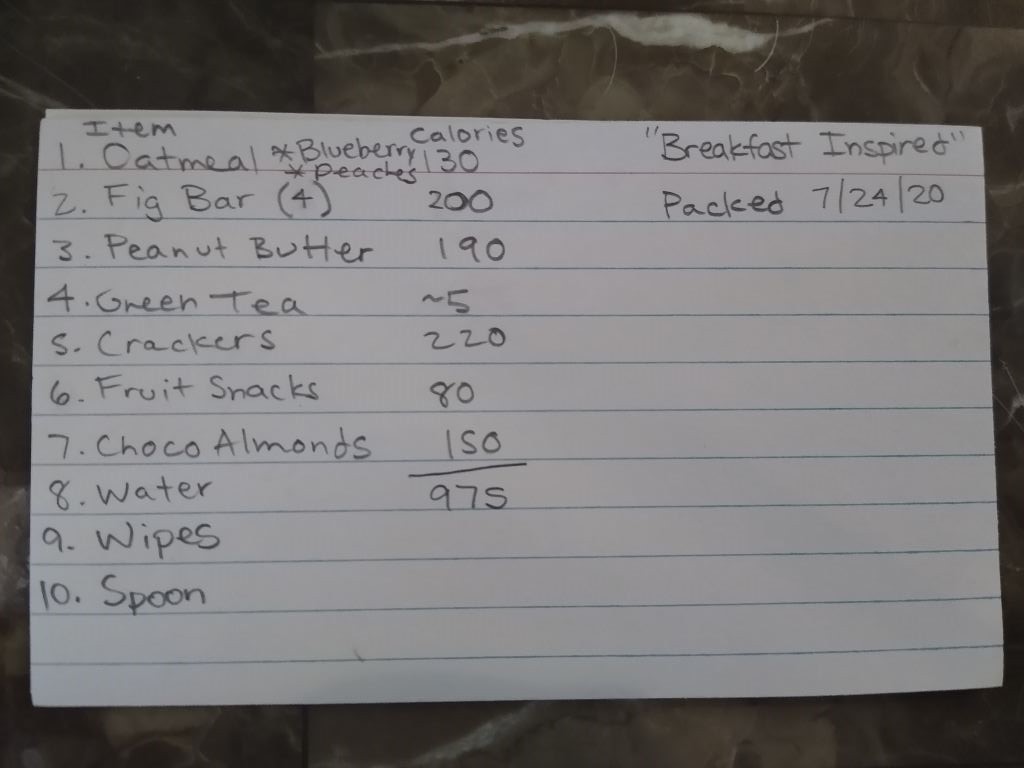 Item Calories "Breakfast Inspired"
1. Oatmeal *Blueberry 130
*Peaches
2. Fig Bar (4) 200 Packed 7/24/20
3. Peanut Butter 190
4. Green Tea ~5
5. Crackers 220
6. Fruit Snacks 80
7. Choco Almonds 150
8. Water 975
9. Wipes
10. Spoon